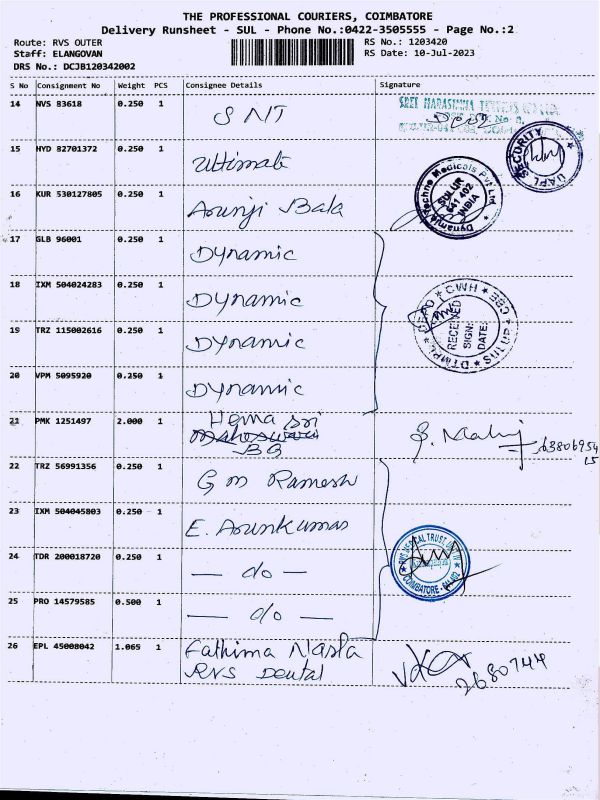 THE PROFESSIONAL COURIERS, COIMBATORE
Delivery Runsheet - SUL - Phone No.:0422-3505555 - Page No.:2
Route: RVS OUTER
RS No.: 1203420
Staff: ELANGOVAN
RS Date: 10-Jul-2023
DRS No.: DCJB120342002
S No Consignment No Weight PCS Consignee Details Signature
14 NVS 83618 0.250 1 SNT
15 HYD 82701372 0.250 1 Ultimate
SECURITY UAPL
16 KUR 530127805 0.250 1 Arunji Bala
Dynamic Techno Medicals Pvt Ltd
SULUR 641 402 INDIA
17 GLB 96001 0.250 1 Dynamic
18 IXM 504024283 0.250 1 Dynamic
RECEIVED
SIGN:
DATE:
19 TRZ 115002616 0.250 1 Dynamic
20 VPM 5095920 0.250 1 Dynamic
21 PMK 1251497 2.000 1 Hema Sri
BG
22 TRZ 56991356 0.250 1 G M Ramesh
23 IXM 504045803 0.250 1 E. Arunkumar
24 TDR 200018720 0.250 1 — do —
RVS MEDICAL TRUST
COIMBATORE
25 PRO 14579585 0.500 1 — do —
26 EPL 45008042 1.065 1 Fathima Nasla
RVS Dental